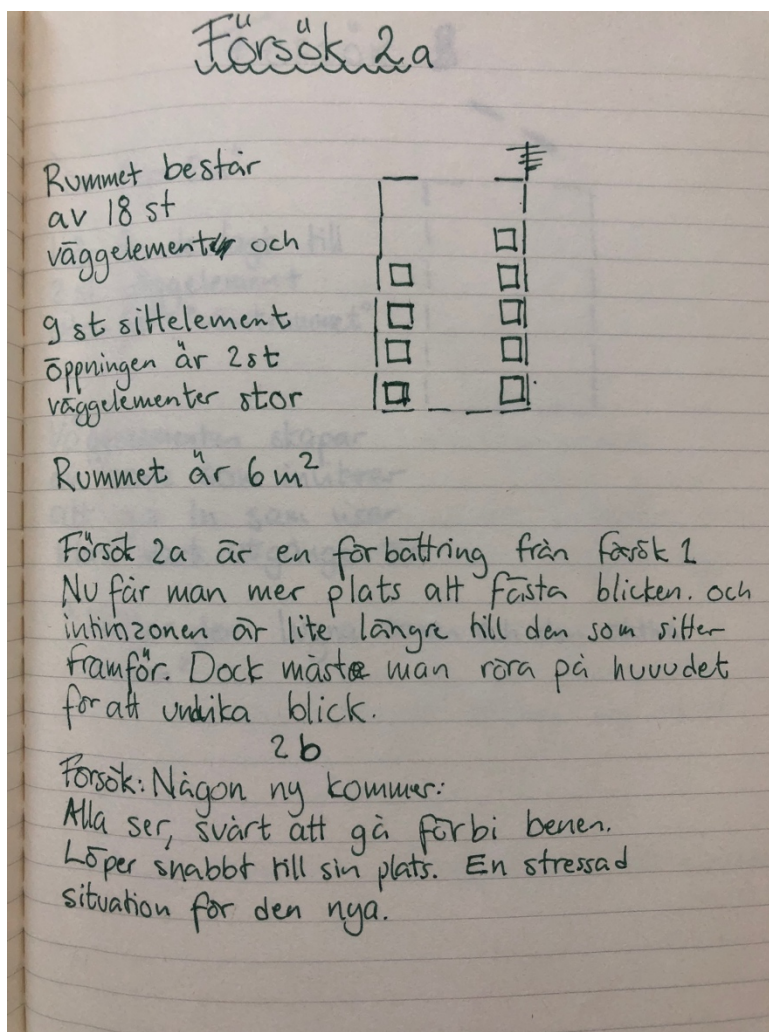 Försök 2a
Rummet består
av 18 st
väggelement och
9 st sittelement
öppningen är 2st
väggelementer stor
Rummet är 6 m²
Försök 2a är en förbättring från försök 1
Nu får man mer plats att fästa blicken. och
intimzonen är lite längre till den som sitter
framför. Dock måste man röra på huvudet
för att undvika blick.
2b
Försök: Någon ny kommer:
Alla ser, svårt att gå förbi benen.
Löper snabbt till sin plats. En stressad
situation för den nya.